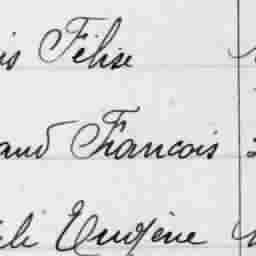 is Félise
aud François
li Eugène